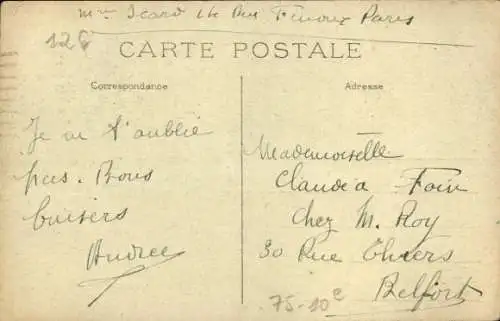 Mme Icard 14 Rue Paris
126
CARTE POSTALE
Correspondance
Je ne t'oublie
pas. Bons
baisers
Andrée
Adresse
Mademoiselle
Claudia Foin
chez M. Roy
30 Rue Thiers
Belfort
75-10e